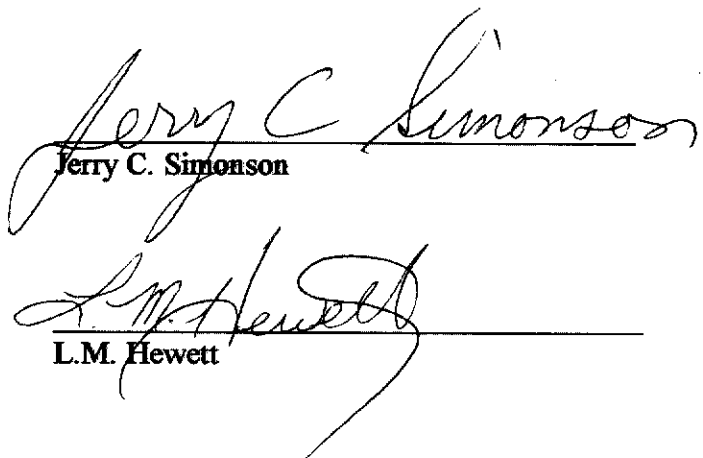 Jerry C Simonson
Jerry C. Simonson
L. M. Hewett
L.M. Hewett